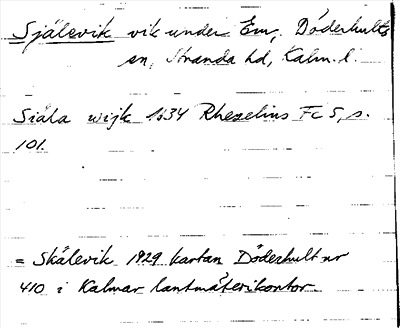 Själevik vik under Em, Döderhults
sn, Stranda hd, Kalm. l.
Siäla wijk 1634 Rhezelius Fc 5, s.
101.
= Skälevik 1929 kartan Döderhult nr
410 i Kalmar lantmäterikontor